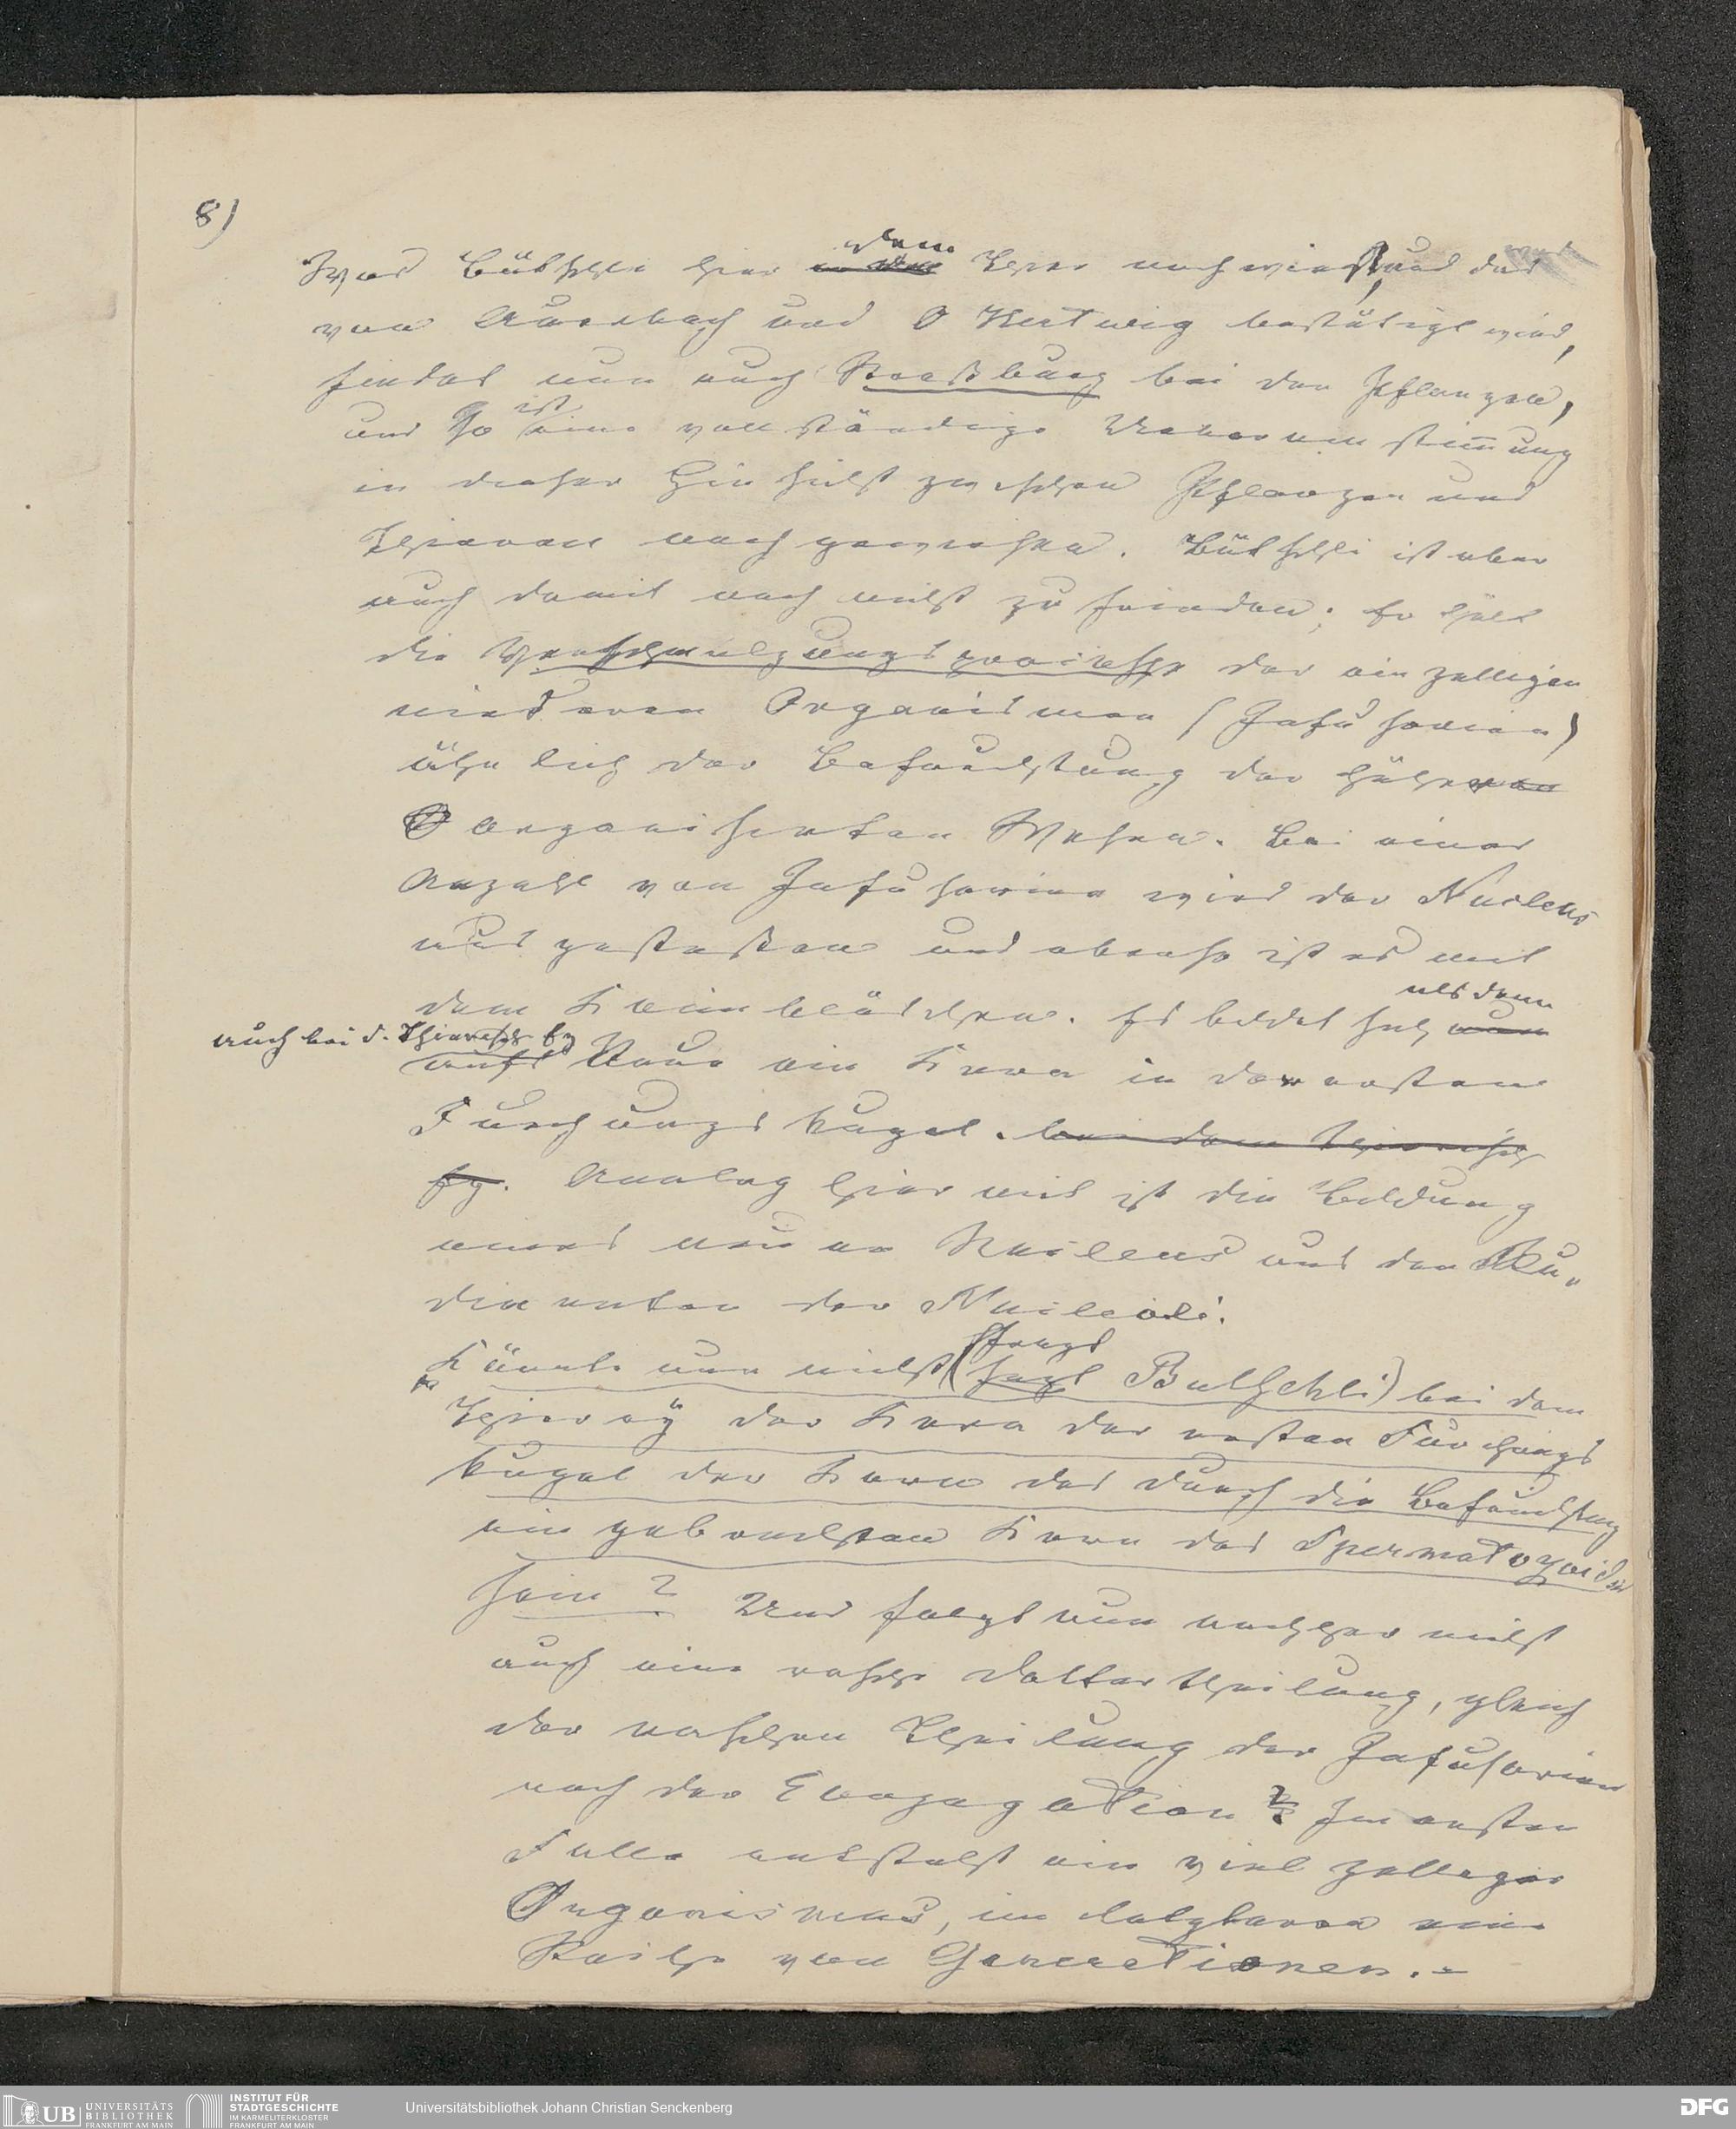 8)
dem
Was Bütschli hier in den Thier nachwies, und das
von Auerbach und O Hertwig bestätigt wird,
findet nun auch Straßburg bei den Pflanzen,
ist
und so eine vollständige Uebereinstimmung
in dieser Hinsicht zwischen Pflanzen und
Thieren nachgewiesen. Bütschli ist aber
auch damit noch nicht zufrieden; er hält
die Verschmelzungsprocesse der einzelligen
niederen Organismen (Infusorien)
ähnlich der Befruchtung der höheren
O organisirten Wesen. Bei einer
Anzahl von Infusorien wird der Nucleus
ausgestoßen und ebenso ist es mit
alsdann
dem Keimbläschen. Es bildet sich nun
auch bei d. thierisch. Ey
aufs Neue ein Kern in der ersten
Furchungskugel. bei dem thierisch
Ey. Analog hiermit ist die Bildung
eines neuen Nucleus aus den Ru-
dimenten der Nucleoli.
frägt
Könnte nun nicht (sagt Butschli) bei dem
Thierey der Kern der ersten Furchungs
kugel der Kern des durch die Befruchtung
eingebrachten Kern des Spermatozoids
sein? Und folgt nun nachher nicht
auch eine rasche Dottertheilung, gleich
der raschen Theilung der Infusorien
nach der Conjugation? Im ersten
Falle entsteht ein vielzelliger
Organismus, im letzteren eine
Reihe von Generationen.-
UB UNIVERSITÄTS BIBLIOTHEK FRANKFURT AM MAIN
INSTITUT FÜR STADTGESCHICHTE IM KARMELITERKLOSTER FRANKFURT AM MAIN
Universitätsbibliothek Johann Christian Senckenberg
DFG